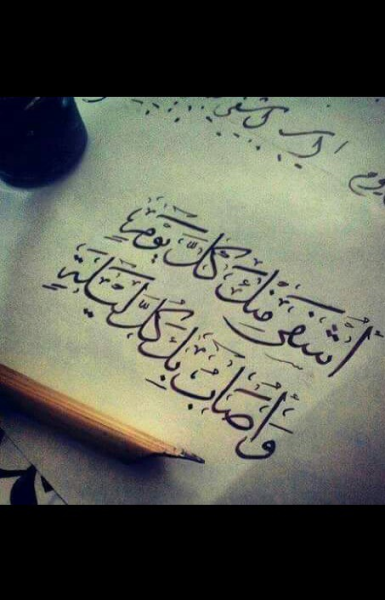 أُشفَى مِنكَ كُلَّ يَومٍ
وَأُصَابُ بِكَ كُلَّ لَيلَةٍ